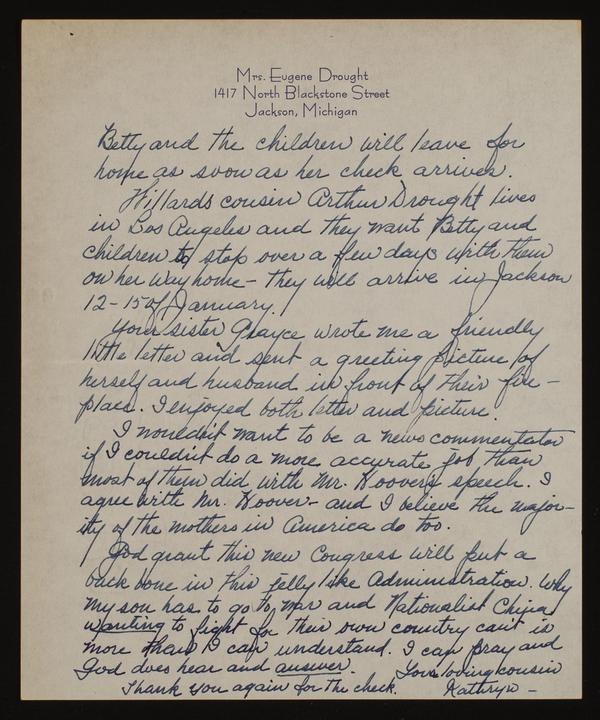 Mrs. Eugene Drought
1417 North Blackstone Street
Jackson, Michigan
Betty and the children will leave for
home as soon as her check arrives.
Willards cousin Arthur Drought lives
in Los Angeles and they want Betty and
children to stop over a few days with them
on her way home - they will arrive in Jackson
12-15 of January.
Your sister Grayce wrote me a friendly
little letter and sent a greeting picture of
herself and husband in front of their fire-
place. I enjoyed both letter and picture.
I wouldn't want to be a news commentator
if I couldn't do a more accurate job than
most of them did with Mr. Hoover's speech. I
agree with Mr. Hoover - and I believe the major-
ity of the mothers in America do too.
God grant this new Congress will put a
back bone in this jelly like Administration. Why
my son has to go to war and Nationalist China
wanting to fight for their own country can't is
more than I can understand. I can pray and
God does hear and answer. Your loving cousin
Thank you again for the check. Kathryn -